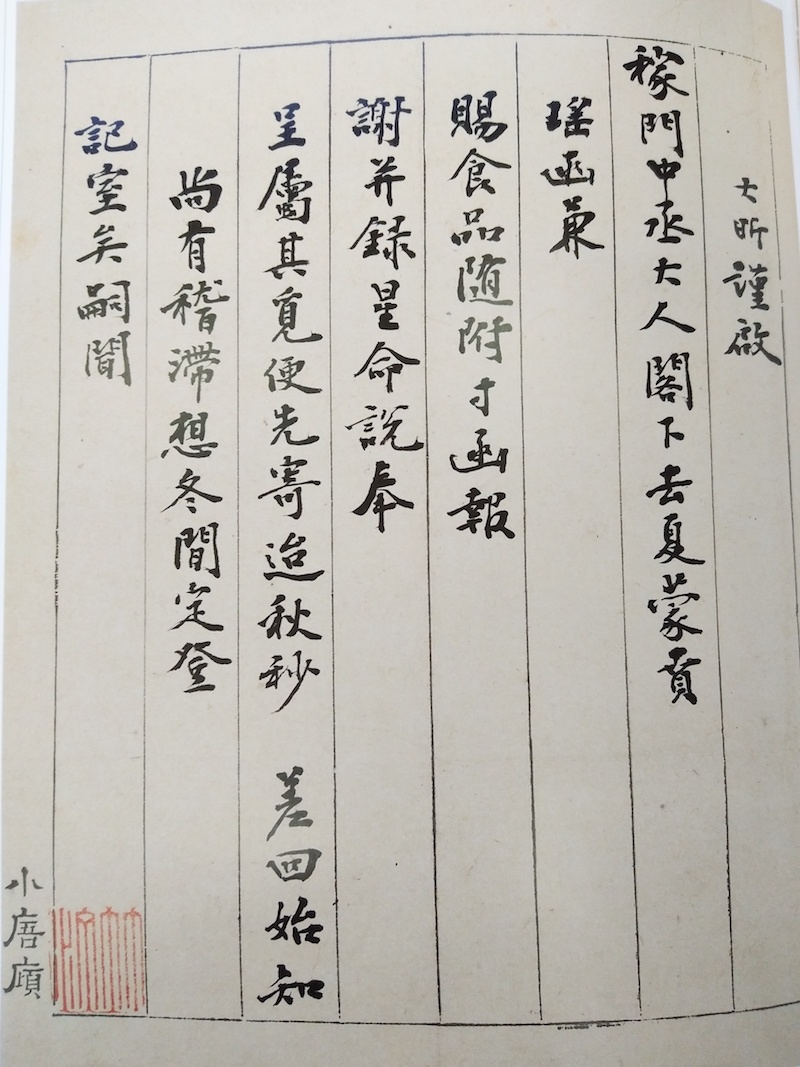 大昕謹啟
稼門中丞大人閣下去夏蒙賁
瑤函兼
賜食品随附寸函報
謝并録星命說奉
呈屬其覓便先寄迨秋杪 差回始知
尚有稽滯想冬間定登
記室矣嗣聞
小唐廎